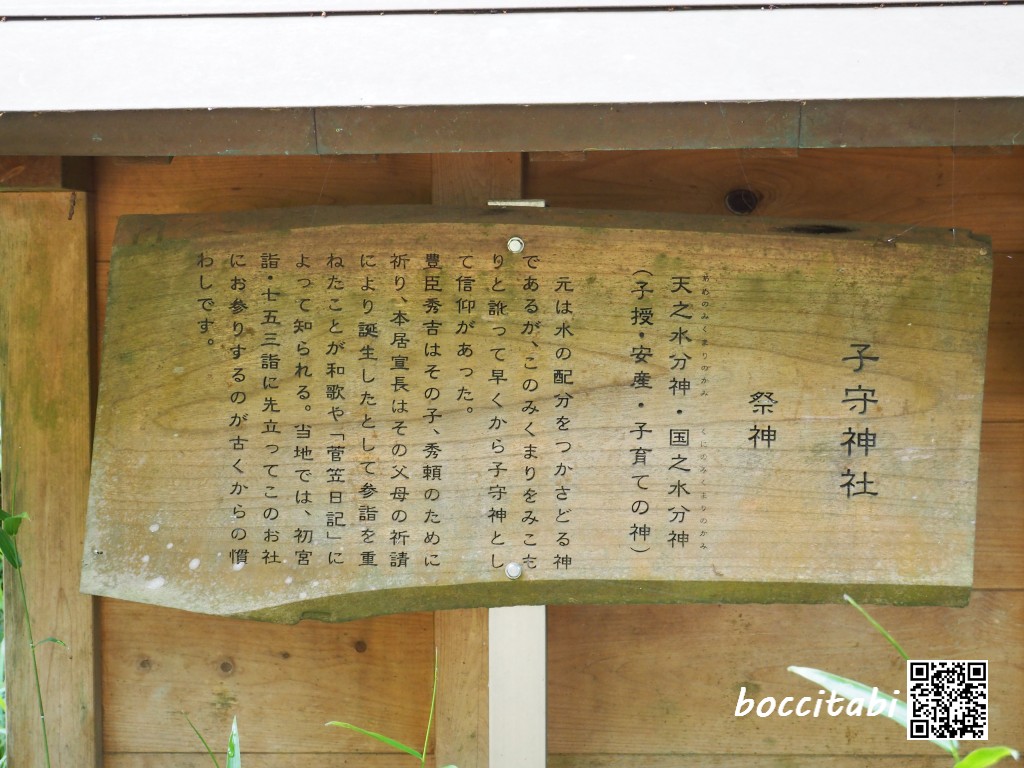 子守神社
祭神
あめのみくまりのかみ くにのみくまりのかみ
天之水分神・国之水分神
(子授・安産・子育ての神)
元は水の配分をつかさどる神
であるが、このみくまりをみこも
りと訛って早くから子守神とし
て信仰があった。
豊臣秀吉はその子、秀頼のために
祈り、本居宣長はその父母の祈請
により誕生したとして参詣を重
ねたことが和歌や「菅笠日記」に
よって知られる。当地では、初宮
詣・七五三詣に先立ってこのお社
にお参りするのが古くからの慣
わしです。
boccitabi